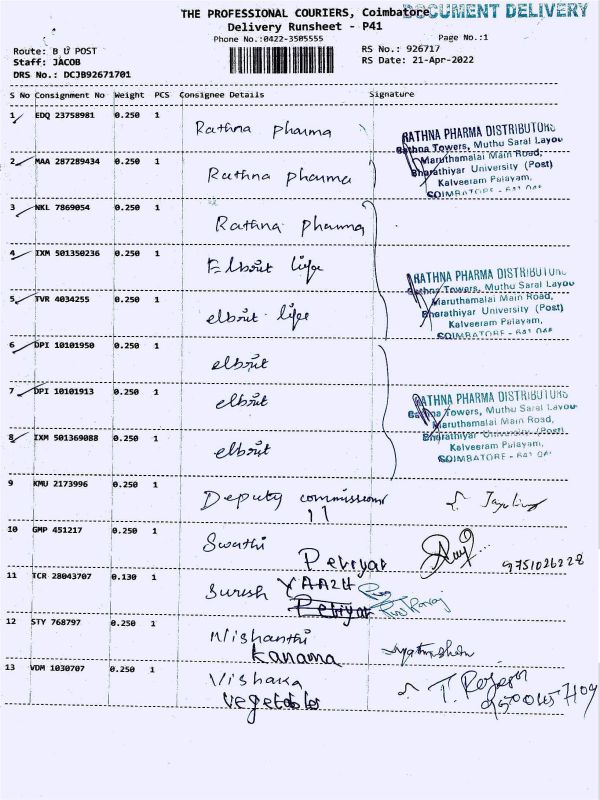 THE PROFESSIONAL COURIERS, Coimbatore
DOCUMENT DELIVERY
Delivery Runsheet - P41
Phone No.:0422-3505555
Page No.:1
Route: B U POST
RS No.: 926717
Staff: JACOB
RS Date: 21-Apr-2022
DRS No.: DCJB92671701
S No Consignment No Weight PCS Consignee Details Signature
1 EDQ 23758981 0.250 1 Rathna pharma
RATHNA PHARMA DISTRIBUTORS
Rathna Towers, Muthu Saral Layou
Maruthamalai Main Road,
Bharathiyar University (Post)
Kalveeram Palayam,
COIMBATORE - 641 046
2 MAA 287289434 0.250 1 Rathna pharma
3 NKL 7869054 0.250 1 Rathna pharma
4 IXM 501350236 0.250 1 Elbrit life
RATHNA PHARMA DISTRIBUTORS
Rathna Towers, Muthu Saral Layou
Maruthamalai Main Road,
Bharathiyar University (Post)
Kalveeram Palayam,
COIMBATORE - 641 046
5 TVR 4034255 0.250 1 elbrit life
6 DPI 10101950 0.250 1 elbrit
7 DPI 10101913 0.250 1 elbrit
RATHNA PHARMA DISTRIBUTORS
Rathna Towers, Muthu Saral Layou
Maruthamalai Main Road,
Bharathiyar University (Post)
Kalveeram Palayam,
COIMBATORE - 641 046
8 IXM 501369088 0.250 1 elbrit
9 KMU 2173996 0.250 1 Deputy commissioner
10 GMP 451217 0.250 1 Swathi
Periyar
9751026228
11 TCR 28043707 0.130 1 Suresh
Periyar
12 STY 768797 0.250 1 Nishanthi
Kanama
13 VDM 1030707 0.250 1 Vishaka
vegetables